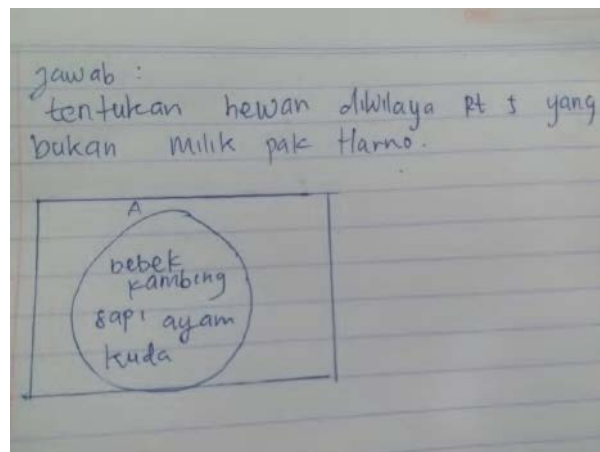 Jawab :
tentukan hewan diwilaya Rt 5 yang
bukan milik pak Harno.
A
bebek
kambing
sapi ayam
kuda